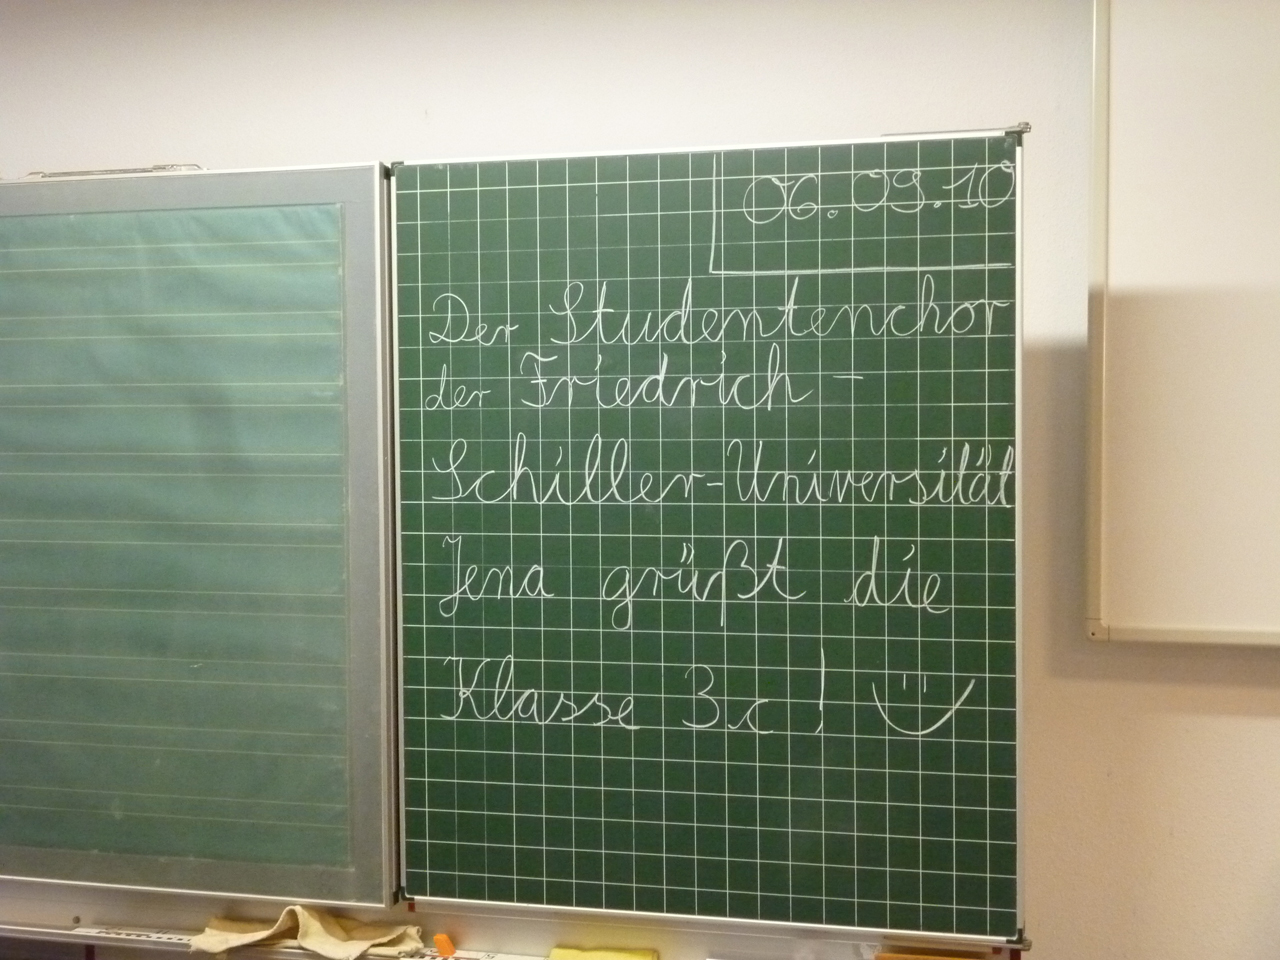 06.09.10
Der Studentenchor
der Friedrich -
Schiller-Universität
Jena grüßt die
Klasse 3c!